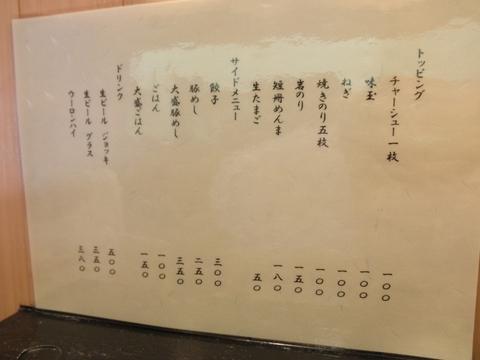 トッピング
チャーシュー一枚 一〇〇
味玉 一〇〇
ねぎ 一〇〇
焼きのり五枚 一〇〇
岩のり 一五〇
短冊めんま 一八〇
生たまご 五〇
サイドメニュー
餃子 三〇〇
豚めし 二五〇
大盛豚めし 三五〇
ごはん 一〇〇
大盛ごはん 一五〇
ドリンク
生ビール ジョッキ 五〇〇
生ビール グラス 三五〇
ウーロンハイ 三八〇